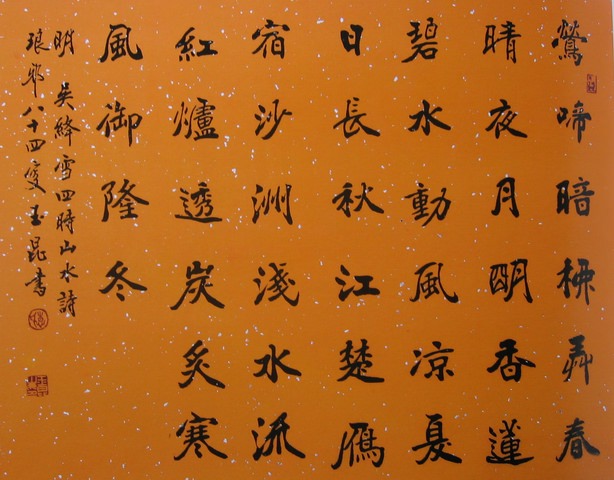 鶯啼暗柳弄春
晴夜月明香蓮
碧水動風凉夏
日長秋江楚鴈
宿沙洲淺水流
紅爐透炭炙寒
風御隆冬
明 吴絳雪四時山水詩
琅邪八十四叟王昆書